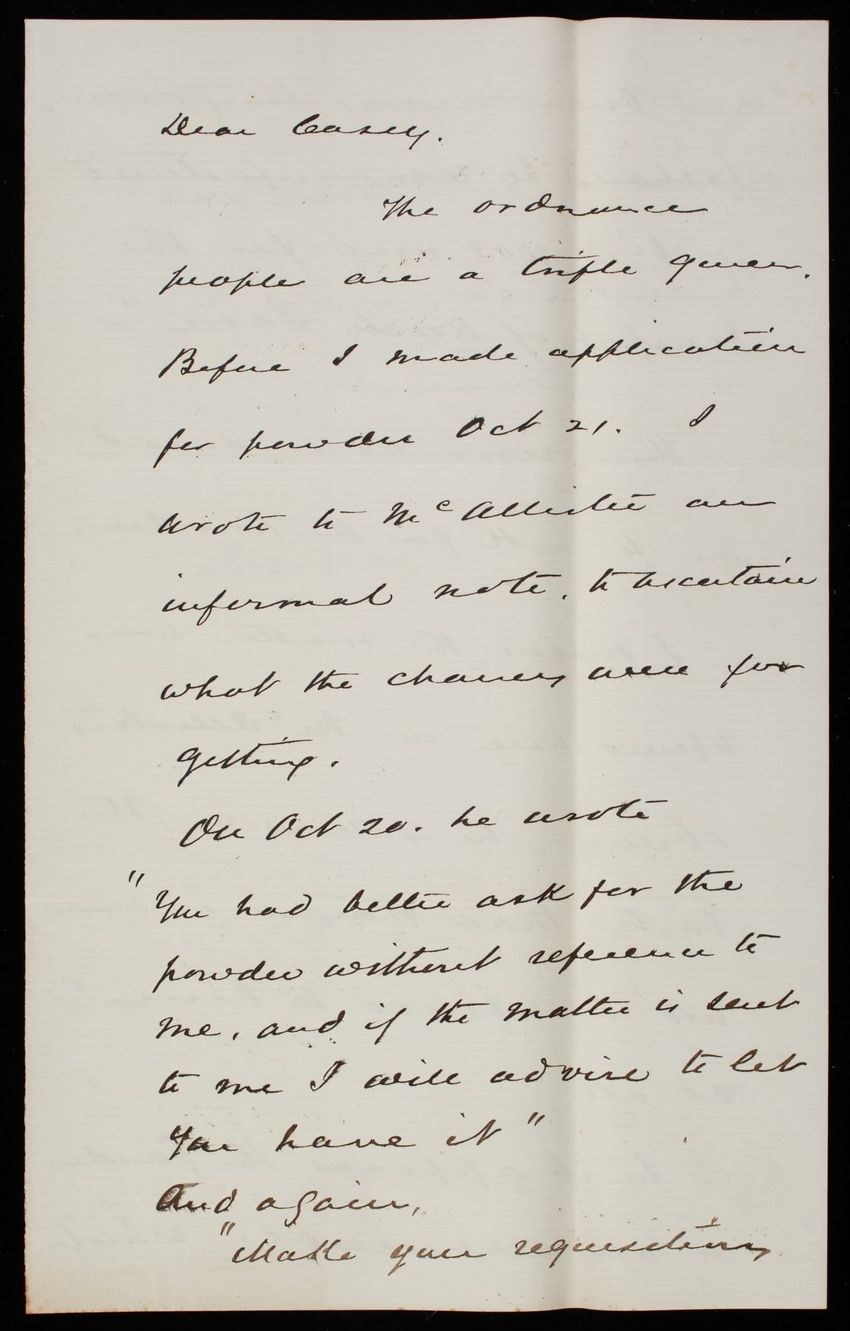 Dear Casey.
The ordnance
people are a trifle queer.
Before I made application
for powder Oct 21. I
wrote to McAllister an
informal note, to ascertain
what the chances were for
getting.
On Oct 20. he wrote
"You had better ask for the
powder without reference to
me, and if the matter is sent
to me I will advise to let
you have it"
And again,
"Make your requisitions